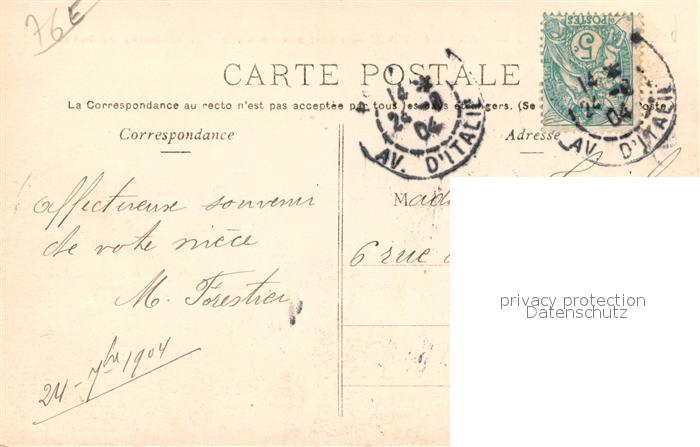 76E
CARTE POSTALE
La Correspondance au recto n'est pas acceptée par tous les pays étrangers. (Se Poste
Correspondance
Adresse
POSTES
5
14 *
24 - 9
04
AV. D'ITALIE
14 *
24 - 9
04
AV. D'ITALIE
affectueux souvenir
de vote nièce
M. Forestier
24 - 7bre 1904
Mad
6 rue
privacy protection
Datenschutz